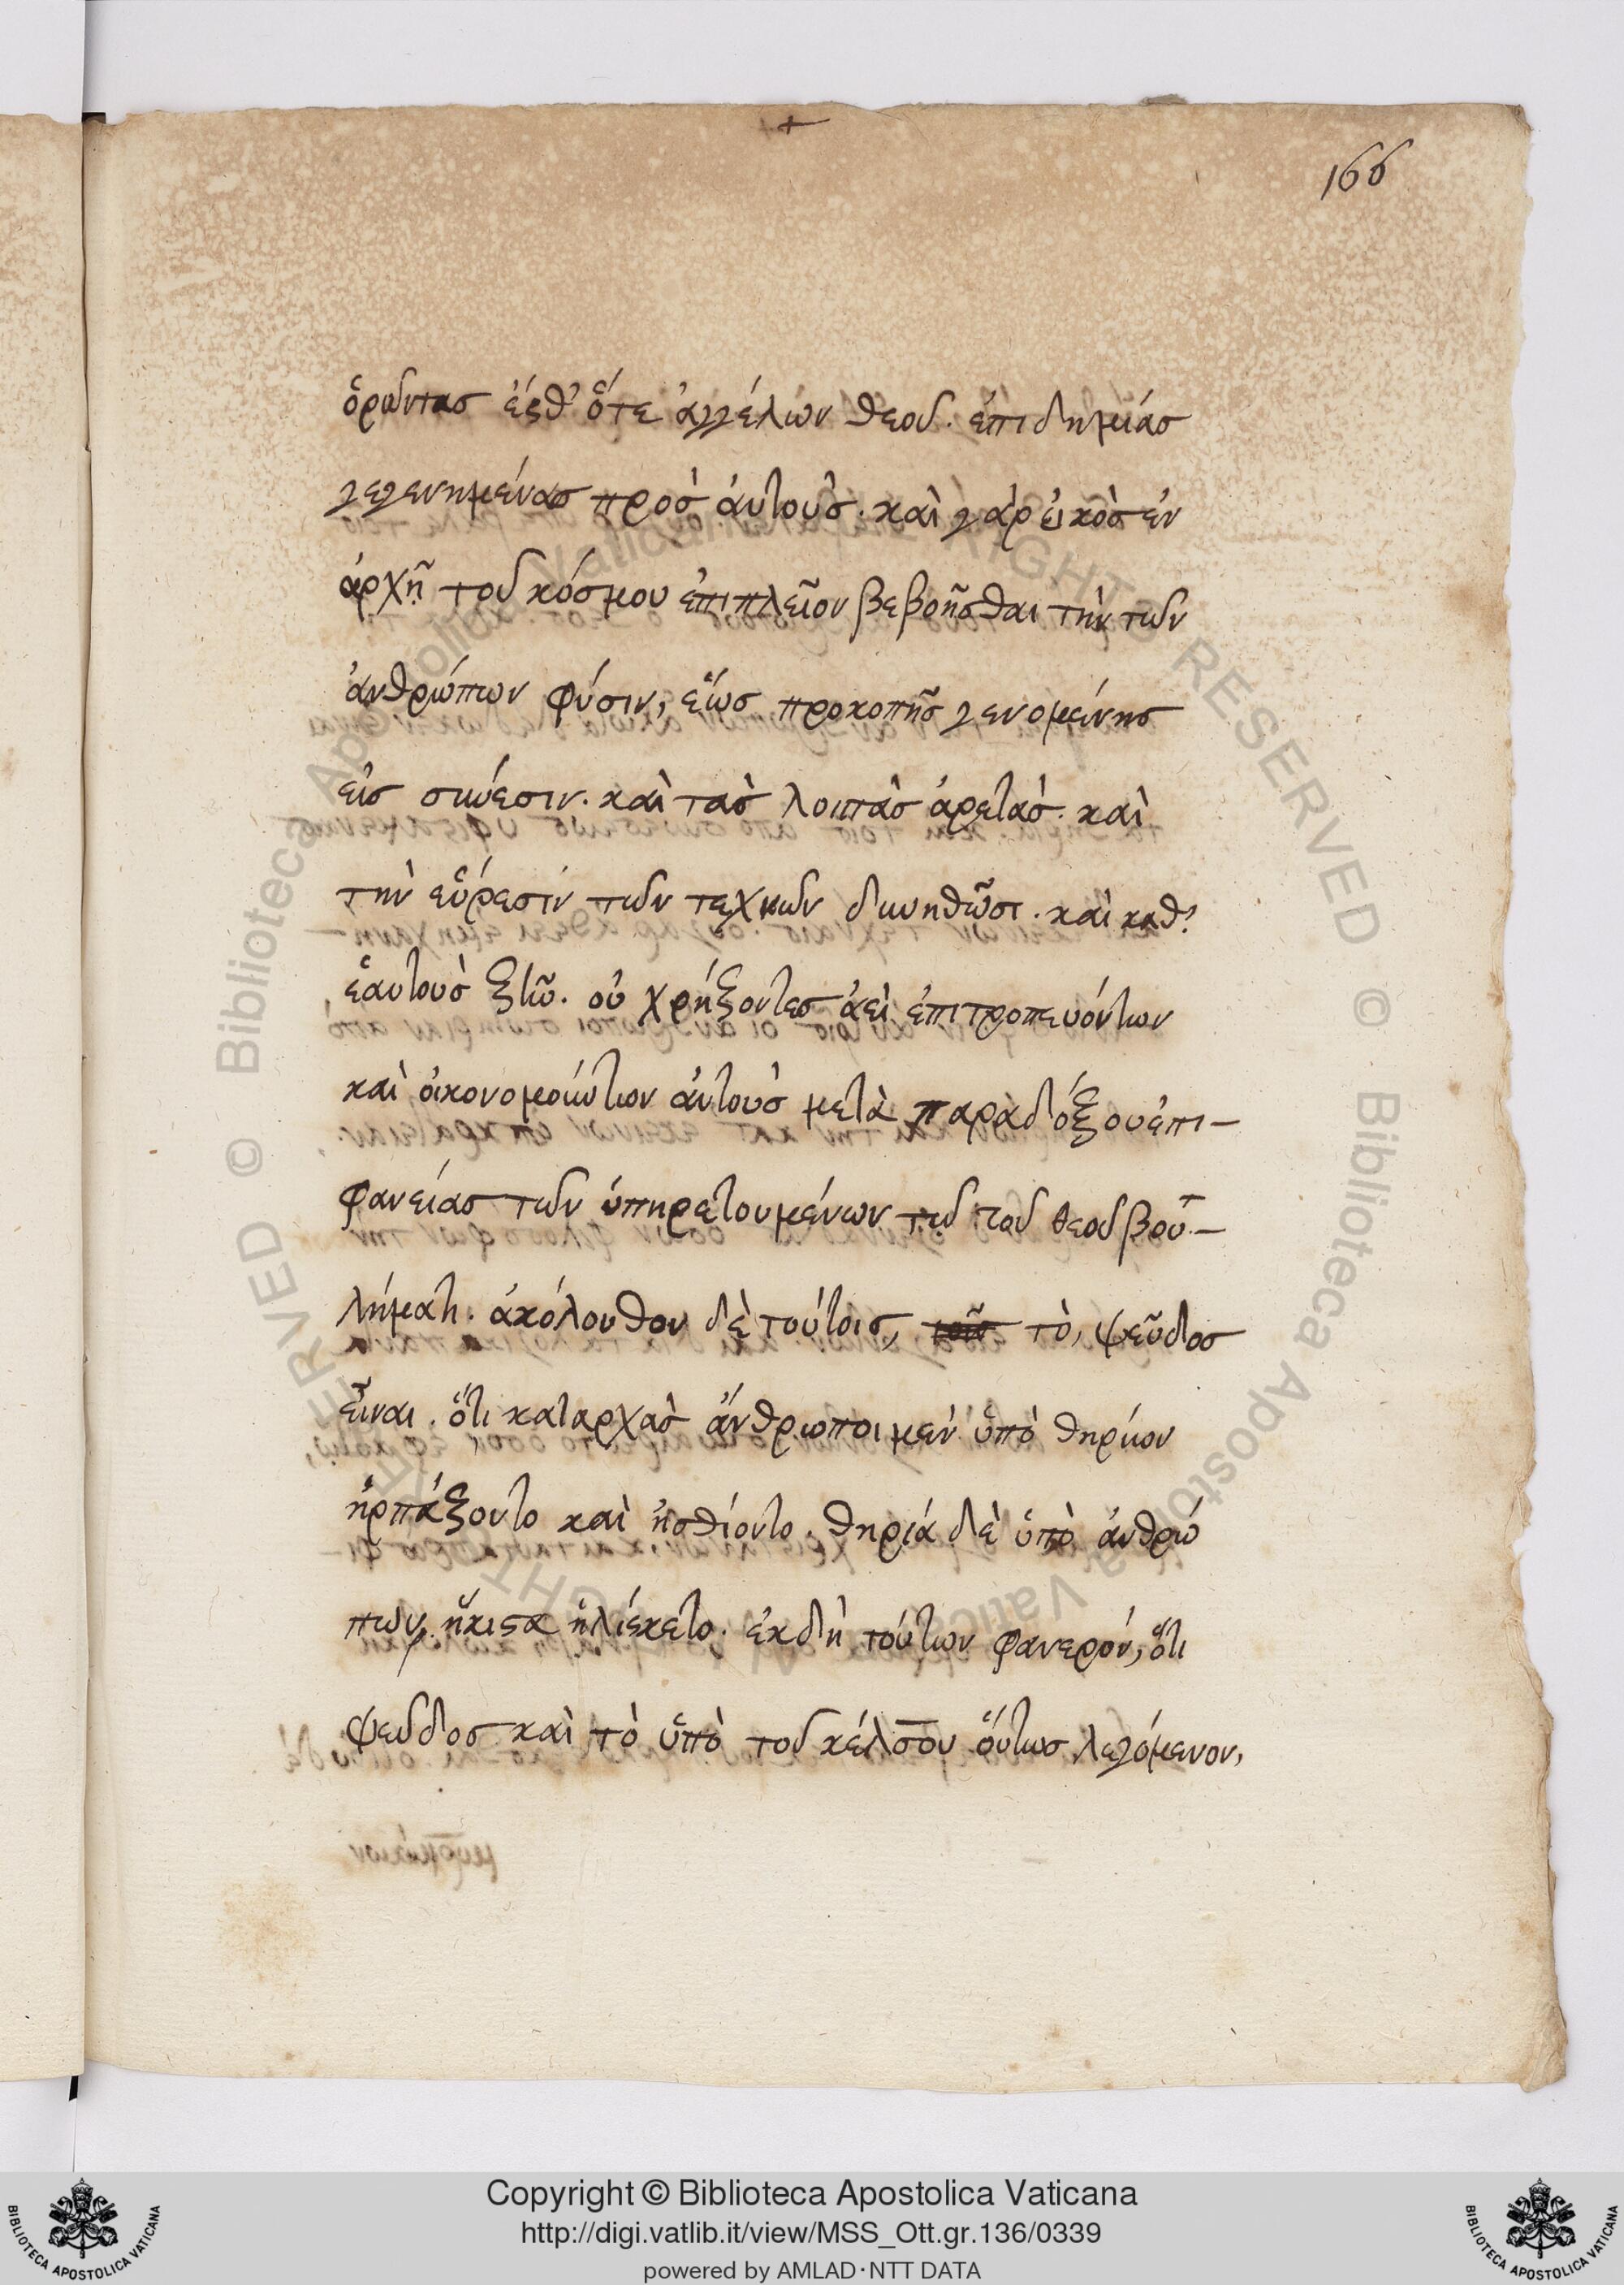 166
ὁρῶντασ ἐσθ' ὅτε ἀγγέλων θεοῦ. ἐπιδημίασ
γεγενημένασ πρὸσ ἀυτοὺσ. καὶ γὰρ ἐικὸσ ἐν
ἀρχῇ τοῦ κόσμου ἐπιπλεῖον βεβοῆσθαι τὴν τῶν
ἀνθρώπων φύσιν, ἕωσ προκοπῆσ γενομένησ
εἰσ σύνεσιν. καὶ τὰσ λοιπὰσ ἀρετὰσ. καὶ
τὴν εὕρεσιν τῶν τεχνῶν δυνηθῶσι. καὶ καθ'
ἑαυτοὺσ ζῆν. οὐ χρήζοντεσ ἀεὶ ἐπιτροπευόντων
καὶ οἰκονομούντων ἀυτοὺσ μετὰ παραδόξου ἐπι-
φανείασ τῶν ὑπηρετουμένων τῷ τοῦ θεοῦ βου-
λήματι. ἀκόλουθον δὲ τούτοισ, τὸ, ψεῦδοσ
εἶναι. ὅτι καταρχὰσ ἄνθρωποι μὲν ὑπὸ θηρίων
ἡρπάζοντο καὶ ἠσθίοντο. θηρία δὲ ὑπὸ ἀνθρώ
πων, ἥκιστα ἡλίσκετο. ἐκ δὴ τούτων φανερόν, ὅτι
ψεῦδοσ καὶ τὸ ὑπὸ τοῦ κέλσου ὅυτωσ λεγόμενον,
Copyright © Biblioteca Apostolica Vaticana
http://digi.vatlib.it/view/MSS_Ott.gr.136/0339
powered by AMLAD·NTT DATA